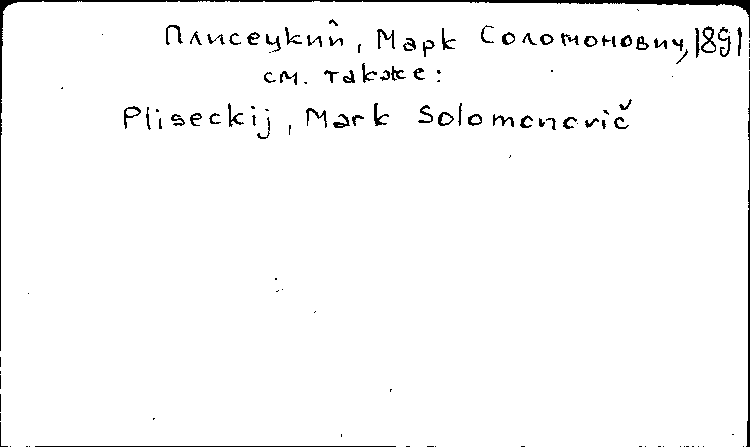 Плисецкий, Марк Соломонович, 1891
см. также:
Pliseckij, Mark Solomonovič